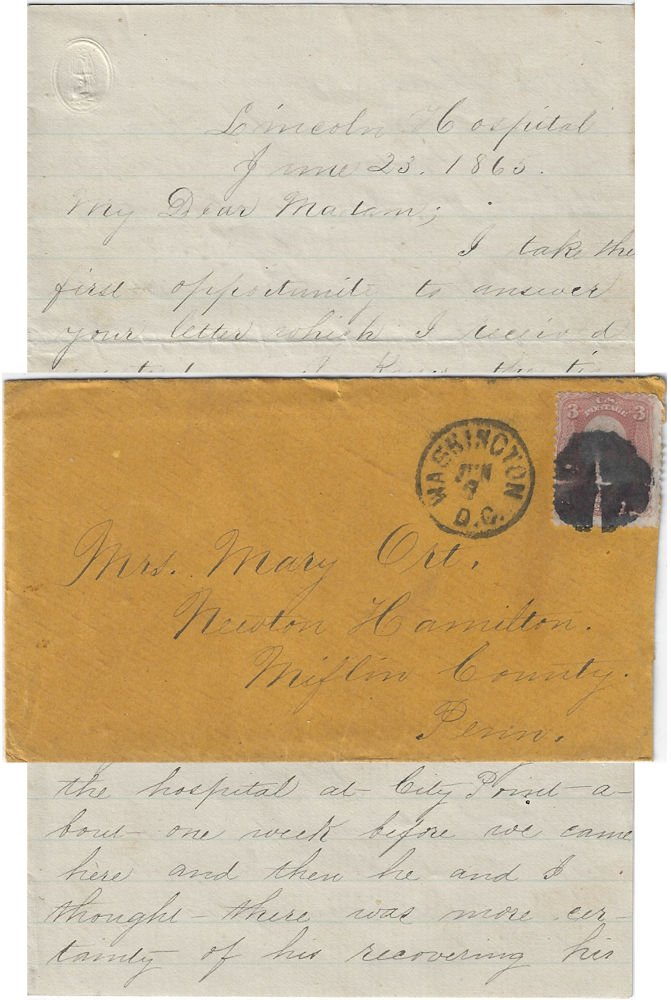 Lincoln Hospital
June 23. 1865.
My Dear Madam;
I take the
first opportunity to answer
your letter which I receivd
WASHINGTON
JUN
D.C.
3 U.S. 3
POSTAGE
Mrs. Mary Ort.
Newton Hamilton.
Miflin County.
Penn.
the hospital at City Point a-
bout one week before we came
here and then he and I
thought there was more cer-
tainty of his recovering his